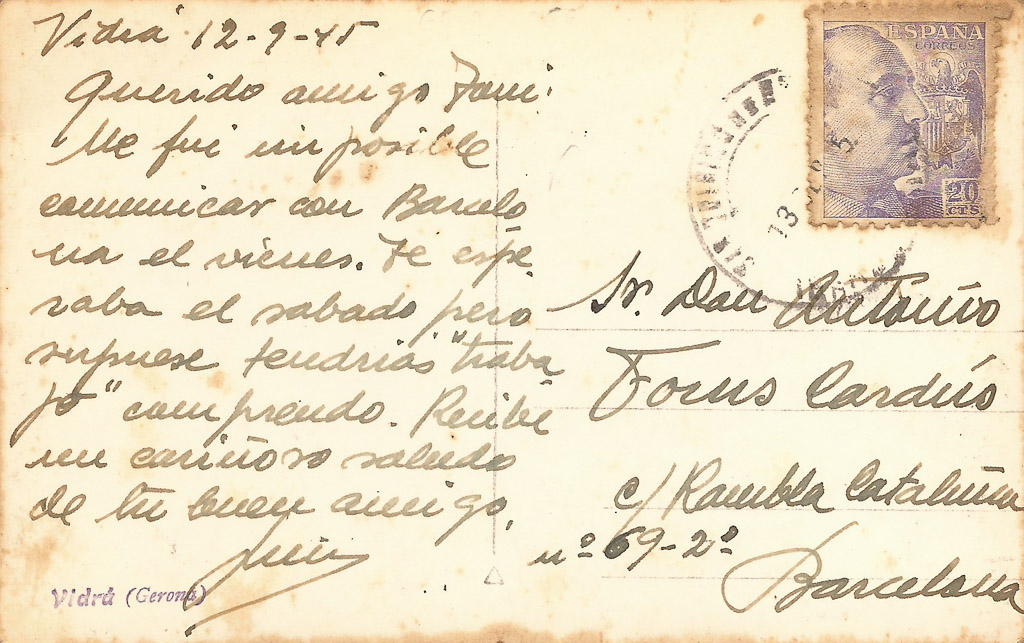 Vidrá 12-9-45
Querido amigo Toni:
Me fui imposible
comunicar con Barcelo
na el viernes. Te espe
raba el sabado pero
supuse tendrias "traba
jo" comprendo. Recibe
un cariñoso saludo
de tu buen amigo,
Vidrá (Gerona)
ESPAÑA
CORREOS
20
CTS
13
Sr. Don Antonio
Forns Cardús
c/ Rambla Cataluña
nº 69-2º
Barcelona